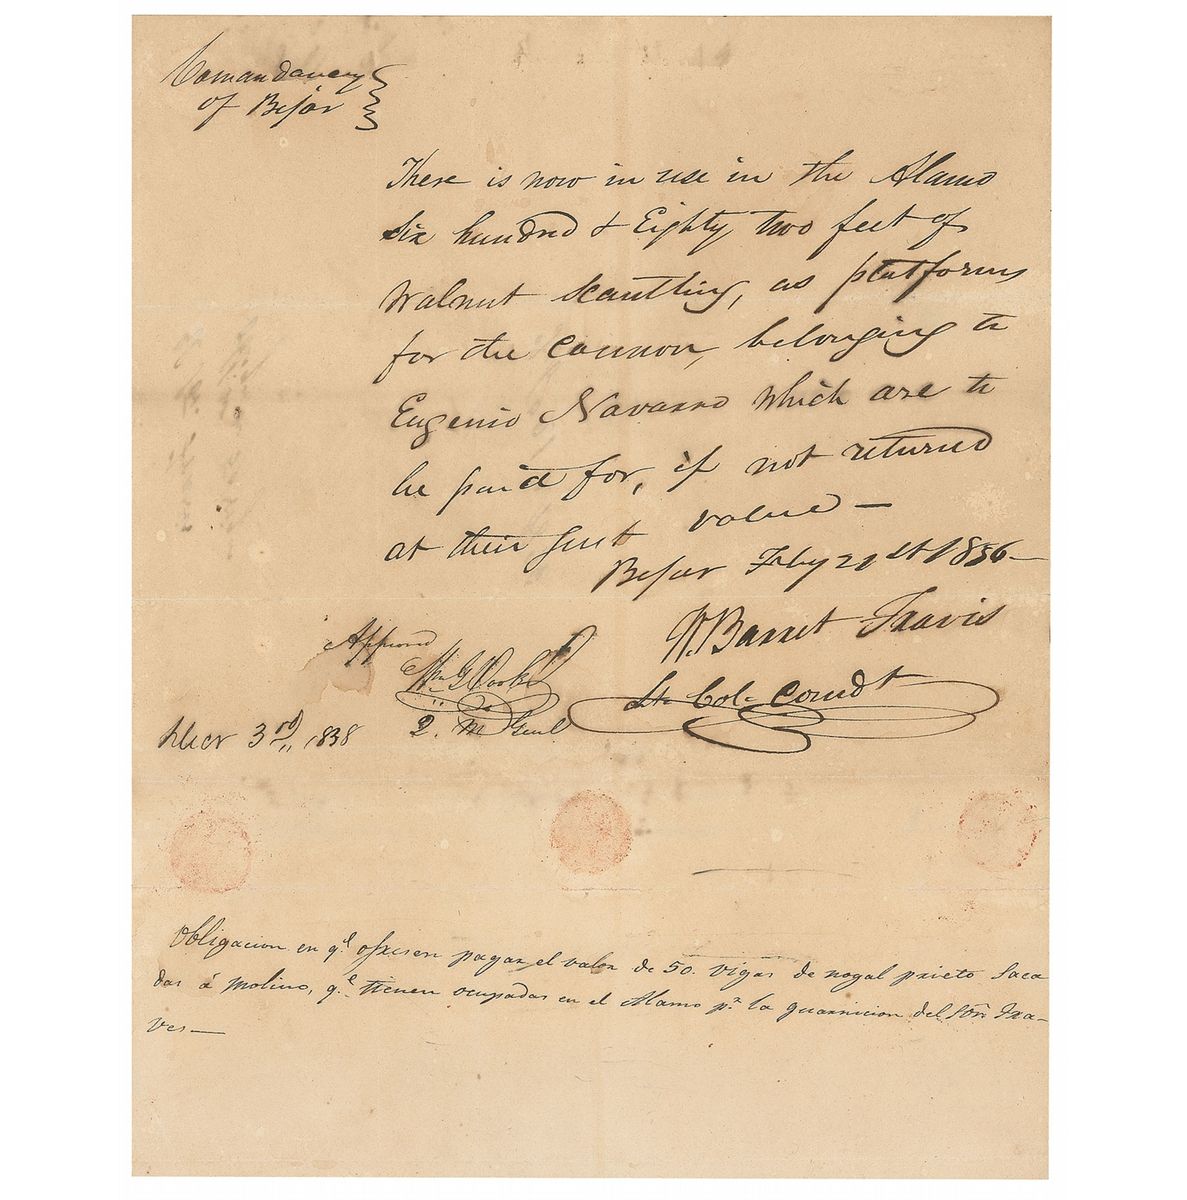 Comandancy
of Bejar
There is now in use in the Alamo
Six hundred & Eighty two feet of
Walnut Scantling, as platforms
for the Cannon, belonging to
Eugenio Navarro which are to
be paid for, if not returned
at their just value—
Bejar Feby 21st 1836—
W. Barret Travis
Lt. Col. Comdt
Approved
Wm G Cooke
Q. M Genl
Decr 3rd 1838
Obligacion en qe. ofresen pagar el valor de 50. vigas de nogal prieto Saca
das á molino, qe. tienen ocupadas en el Alamo pa. la guarnicion del Sōr. Tra-
ves—